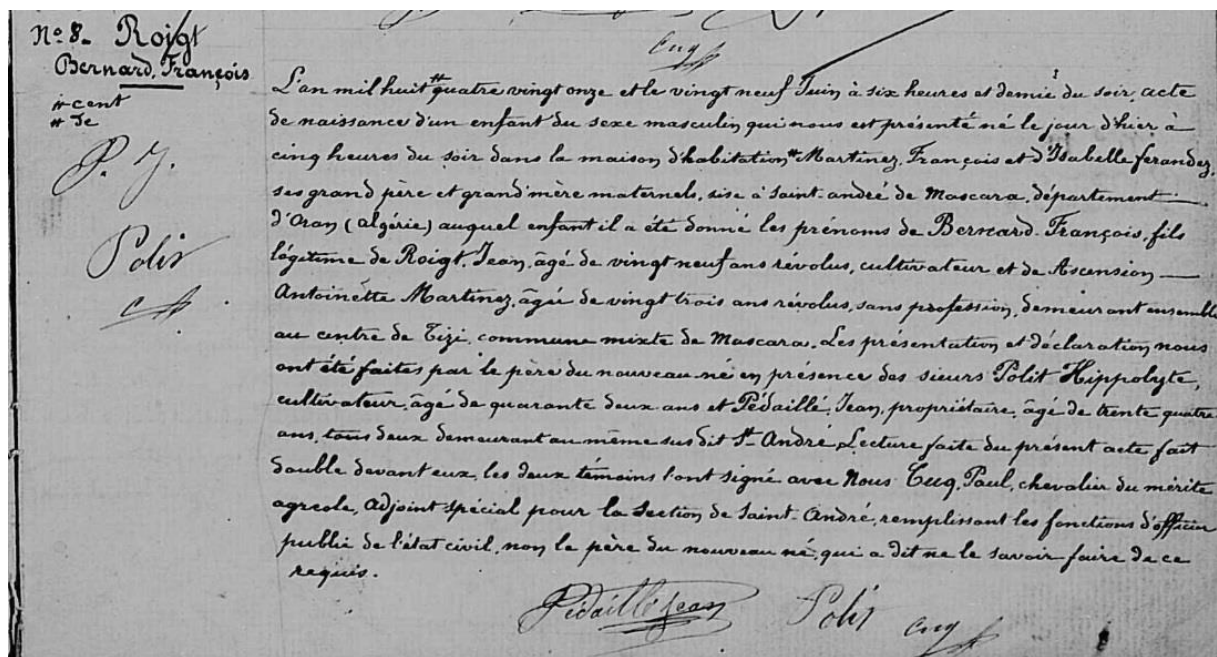 Cuq
N° 8. Roigt
Bernard, François
# cent
# De
P. J.
Polit
C
L'an mil huit # quatre vingt onze et le vingt neuf Juin à six heures et demie du soir, acte
de naissance d'un enfant du sexe masculin qui nous est présenté né le jour d'hier à
cinq heures du soir dans la maison d'habitation # Martinez, François et d'Isabelle ferandez,
ses grand père et grand'mère maternels, sise à Saint-andré de Mascara, département
d'Oran (algérie) auquel enfant il a été donné les prénoms de Bernard-François, fils
légitime de Roigt, Jean, âgé de vingt neuf ans révolus, cultivateur et de Ascension
Antoinette Martinez, âgée de vingt trois ans révolus, sans profession, demeurant ensemble
au centre de Tizi, commune mixte de Mascara. Les présentation et déclaration nous
ont été faites par le père du nouveau né en présence des sieurs Polit Hippolyte,
cultivateur, âgé de quarante deux ans et Pédaillé, Jean, propriétaire, âgé de trente quatre
ans, tous deux demeurant au même sus dit St André. Lecture faite du présent acte fait
double devant eux, les deux témoins l'ont signé avec Nous Cuq, Paul, chevalier du mérite
agreole, Adjoint spécial pour la section de Saint-André, remplissant les fonctions d'officier
public de l'état civil, non le père du nouveau né, qui a dit ne le savoir faire de ce
requis.
Pédaillé Jean Polit Cuq